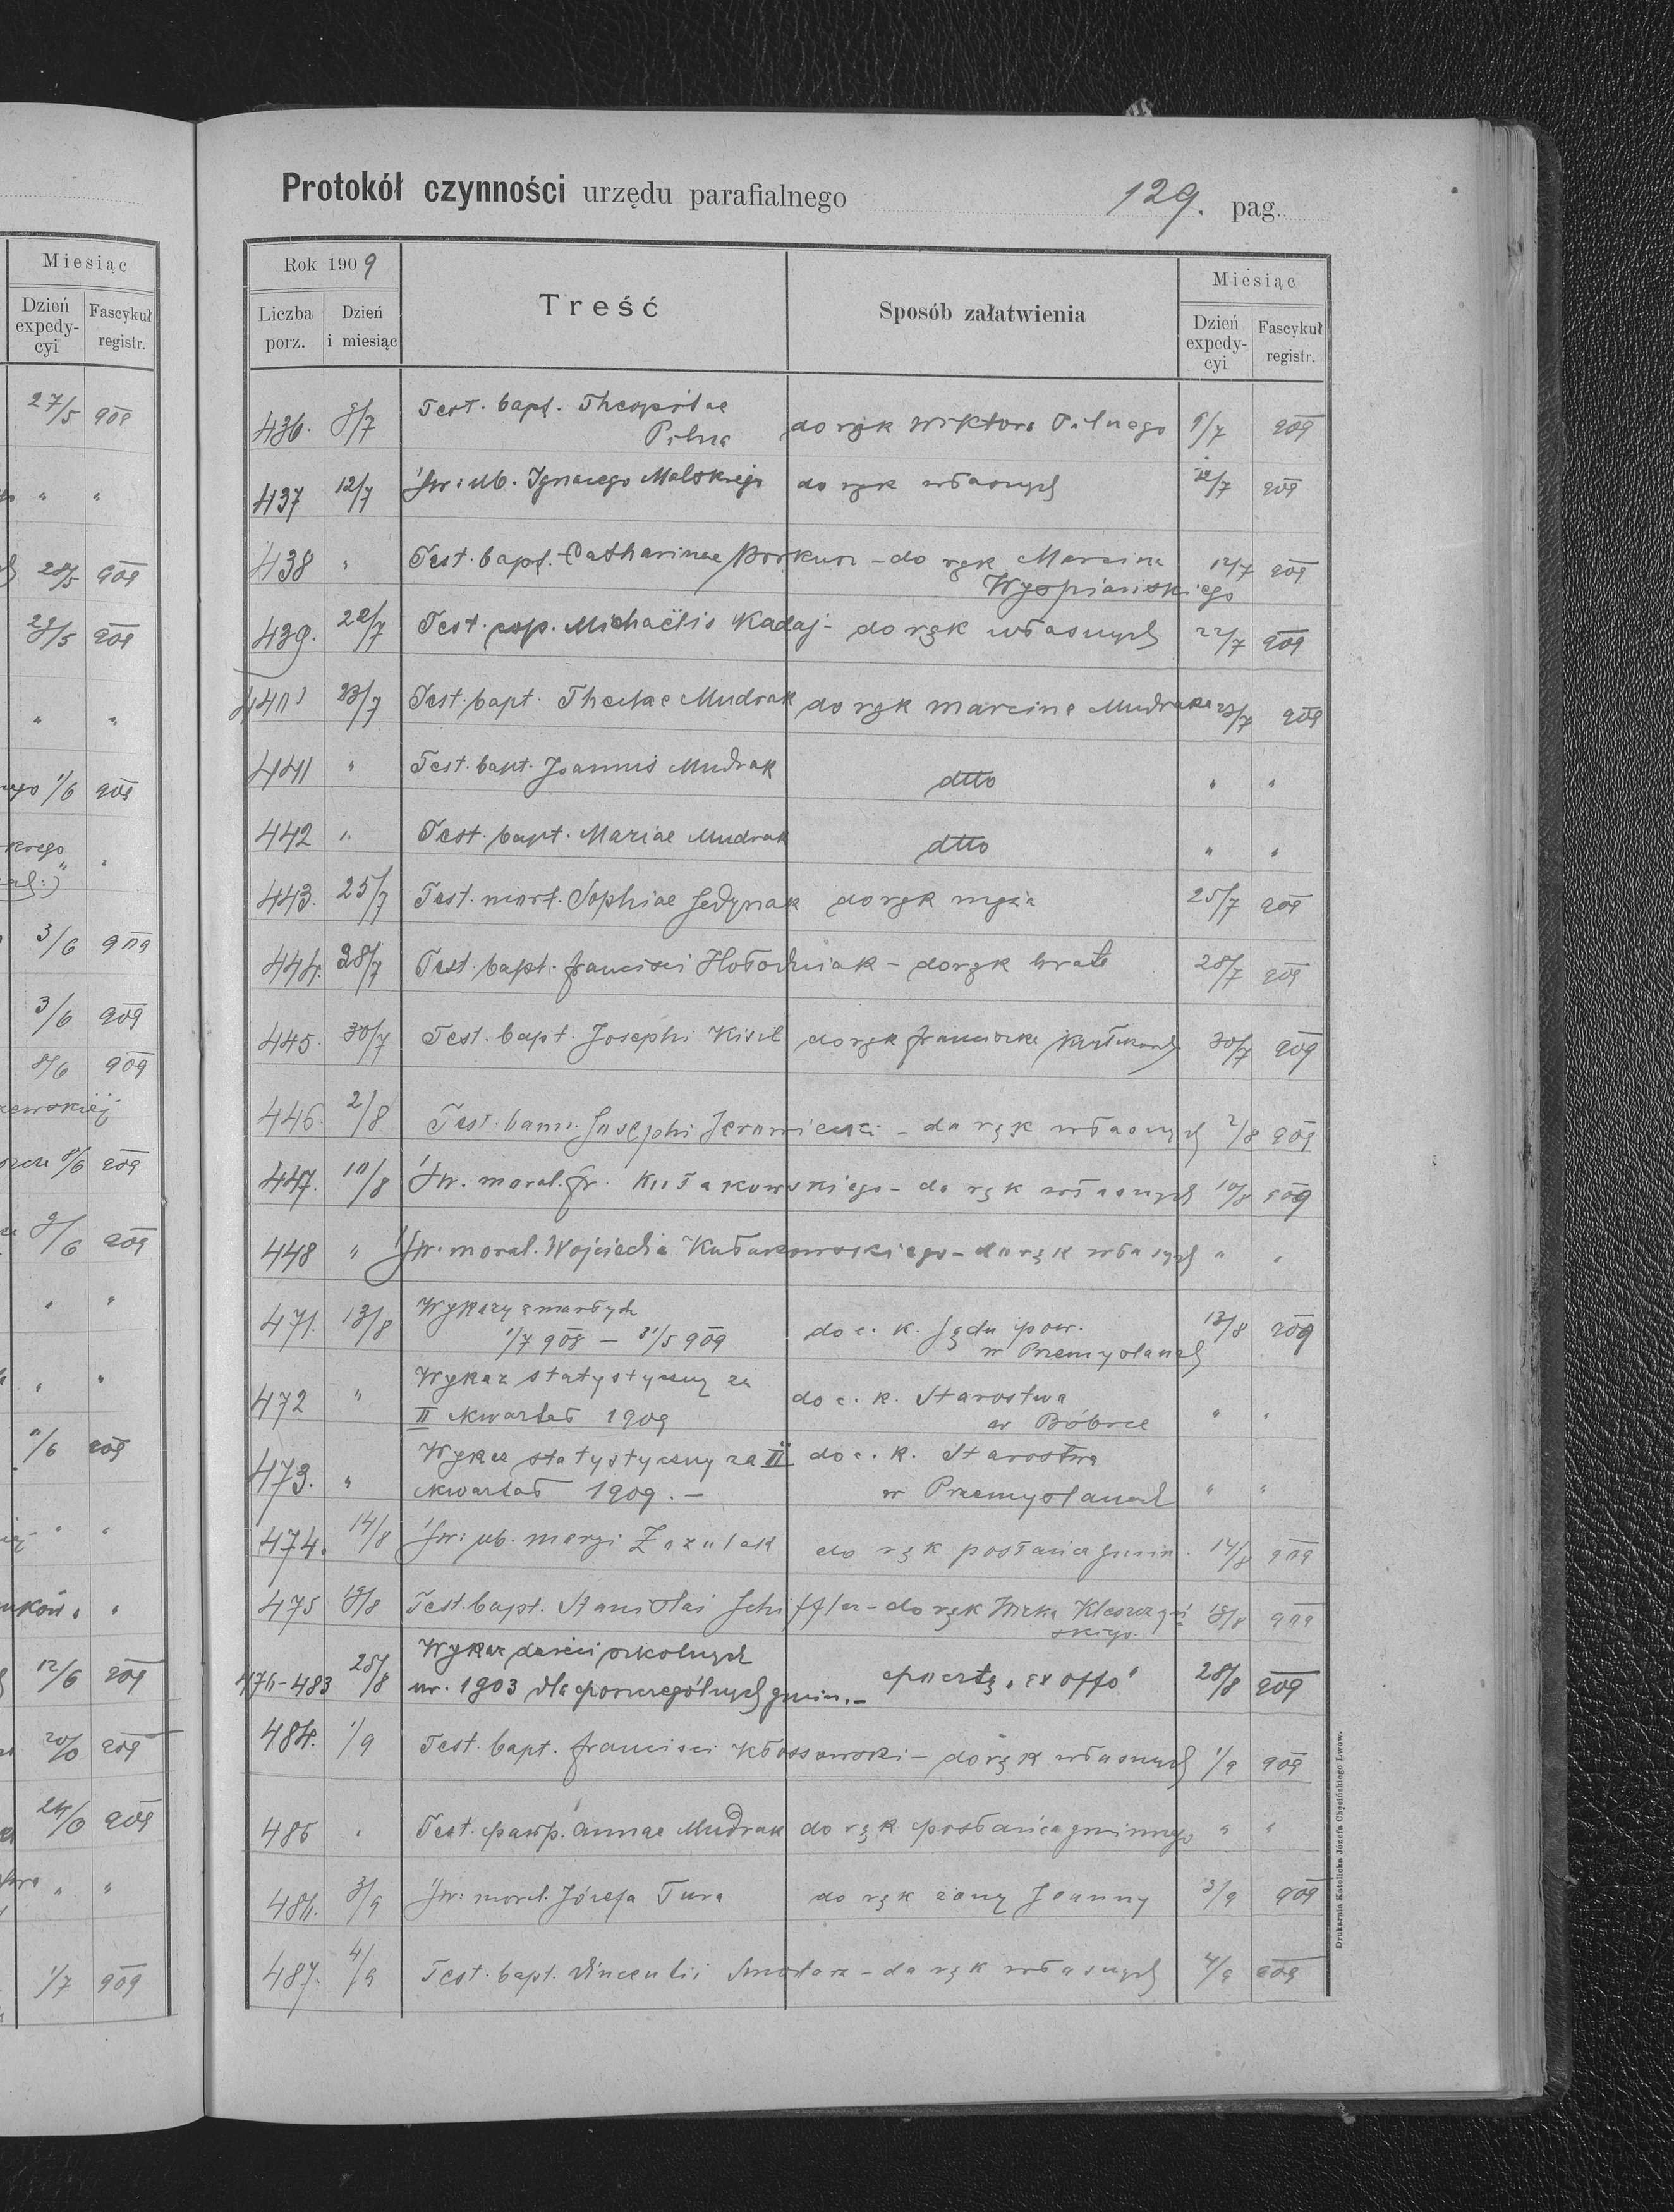 Protokół czynności urzędu parafialnego 129. pag.
Miesiąc
Dzień expedycyi
Fascykuł registr.
27/5 909
" "
28/5 909
29/5 909
" "
1/6 909
" "
3/6 909
3/6 909
8/6 909
8/6 909
9/6 909
" "
" "
11/6 909
" "
" "
12/6 909
909
909
" "
1/7 909
Rok 1909
Liczba porz.
Dzień i miesiąc
Treść
Sposób załatwienia
Miesiąc
Dzień expedycyi
Fascykuł registr.
436. 9/7 Test. bapt. Theophilae do rąk Wiktora Pilnego 9/7 909
Pilna
437 12/7 Św: ub. Ignacego Malskiego do rąk własnych 12/7 909
438 " Test. bapt. Catharinae - do rąk Marcina 12/7 909
Wyspiańskiego
439. 22/7 Test. cop. Michaëlis Kadaj - do rąk własnych 22/7 909
440 23/7 Test. bapt. Theclae Mudrak do rąk Marcina Mudraka 23/7 909
441 " Test. bapt. Joannis Mudrak dtto " "
442 " Test. bapt. Mariae Mudrak dtto " "
443. 25/7 Test. mort. Sophiae Jedynak do rąk męża 25/7 909
444. 28/7 Test. bapt. Francisci Hołodniak - do rąk brata 28/7 909
445. 30/7 Test. bapt. Josephi Kisil do rąk Franciszka 30/7 909
446. 2/8 Test. bann. Josephi - do rąk własnych 2/8 909
447. 10/8 Św. moral. Fr. Kułakowskiego - do rąk własnych 10/8 909
448 " Św. moral. Wojciecha Kułakowskiego - do rąk własnych " "
471. 13/8 Wykazy zmarłych do c. k. Sądu pow. 13/8 909
1/7 908 – 31/5 909 w Przemyślanach
472 " Wykaz statystyczny za do c. k. Starostwa
II kwartał 1909 w Bóbrce " "
473. " Wykaz statystyczny za II do c. k. Starostwa
kwartał 1909. – w Przemyślanach " "
474. 14/8 Św: ub. Maryi Zazulak do rąk posłańca gmin. 14/8 909
475 19/8 Test. bapt. Stanislai Schiffler - do rąk 909
skiego
476-483 28/8 Wykaz dzieci szkolnych
ur. 1903 dla poszczególnych gmin. – pocztą "ex offo" 28/8 909
484. 1/9 Test. bapt. Francisci Kłossowski - do rąk własnych 1/9 909
485 " Test. paup. Annae Mudrak do rąk posłańca gminnego " "
486. 3/9 Św: moral. Józefa Tura do rąk żony Joanny 3/9 909
487. 4/9 Test. bapt. Vincentii Smolarz - do rąk własnych 4/9 909
Drukarnia Katolicka Józefa Chęcińskiego Lwów.